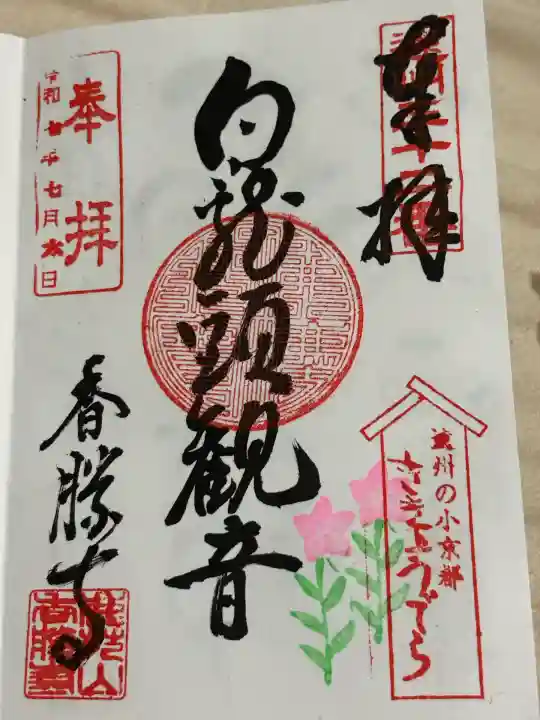 奉拝
白龍頭観音
遠州の小京都
ききょうでら
奉拝
令和七年七月吉日
香勝寺